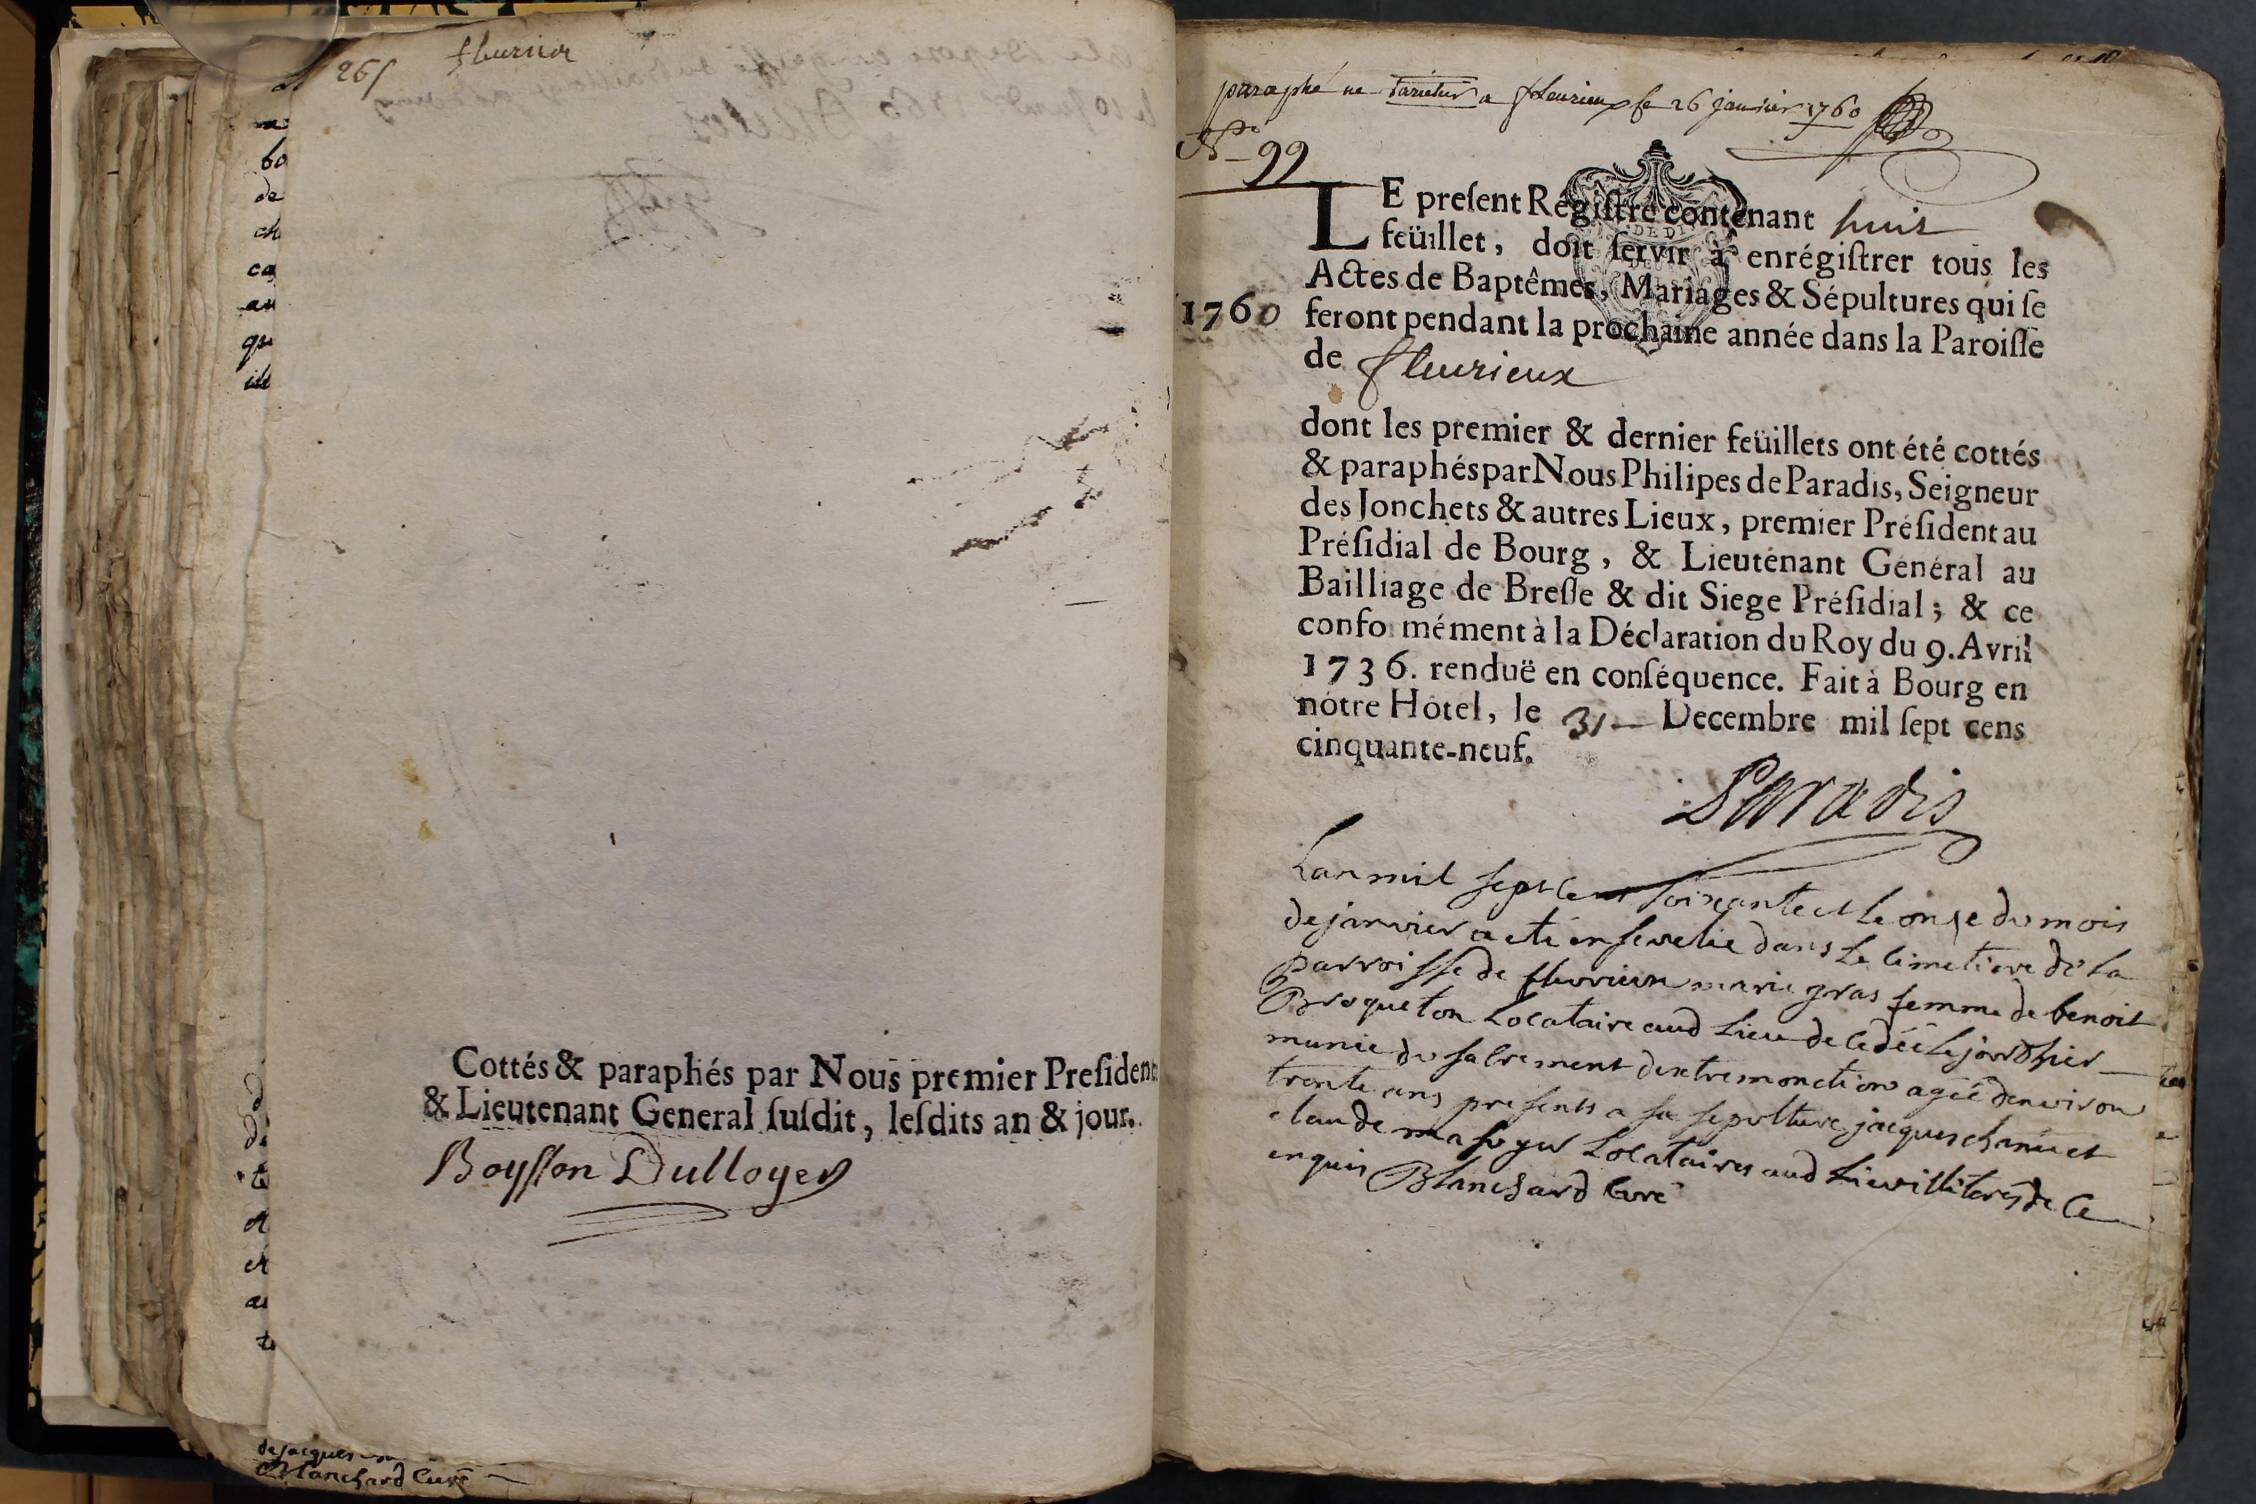 fleurieu
Cottés & paraphés par Nous premier President
& Lieutenant General ſuſdit, leſdits an & jour.
Boysson Dulloyer
de jacques
Blanchard Curé
paraphé ne varietur a fleurieux le 26 janvier 1760
N° 99
LE preſent Régiſtre contenant huit
feüillet, doit ſervir à enrégiſtrer tous les
Actes de Baptêmes, Mariages & Sépultures qui ſe
1760 feront pendant la prochaine année dans la Paroiſſe
de fleurieux
dont les premier & dernier feüillets ont été cottés
& paraphés par Nous Philipes de Paradis, Seigneur
des Jonchets & autres Lieux, premier Préſident au
Préſidial de Bourg, & Lieutenant Général au
Bailliage de Breſſe & dit Siege Préſidial; & ce
confo mément à la Déclaration du Roy du 9. Avril
1736. renduë en conſéquence. Fait à Bourg en
nôtre Hôtel, le 31 Decembre mil ſept cens
cinquante-neuf.
Paradis
Lan mil sept cent soixante et le onze du mois
de janvier a eté ensevelie dans le cimetiere de la
parroisse de fleurieux marie gras femme de benoit
Broqueton locataire aud lieu decedeé le jour dhier
munie du sacrement dextremonction agéé denviron
trente ans presents a sa sepulture jacques chanu et
claude locataires aud lieu illiterés de ce
enquis Blanchard Curé